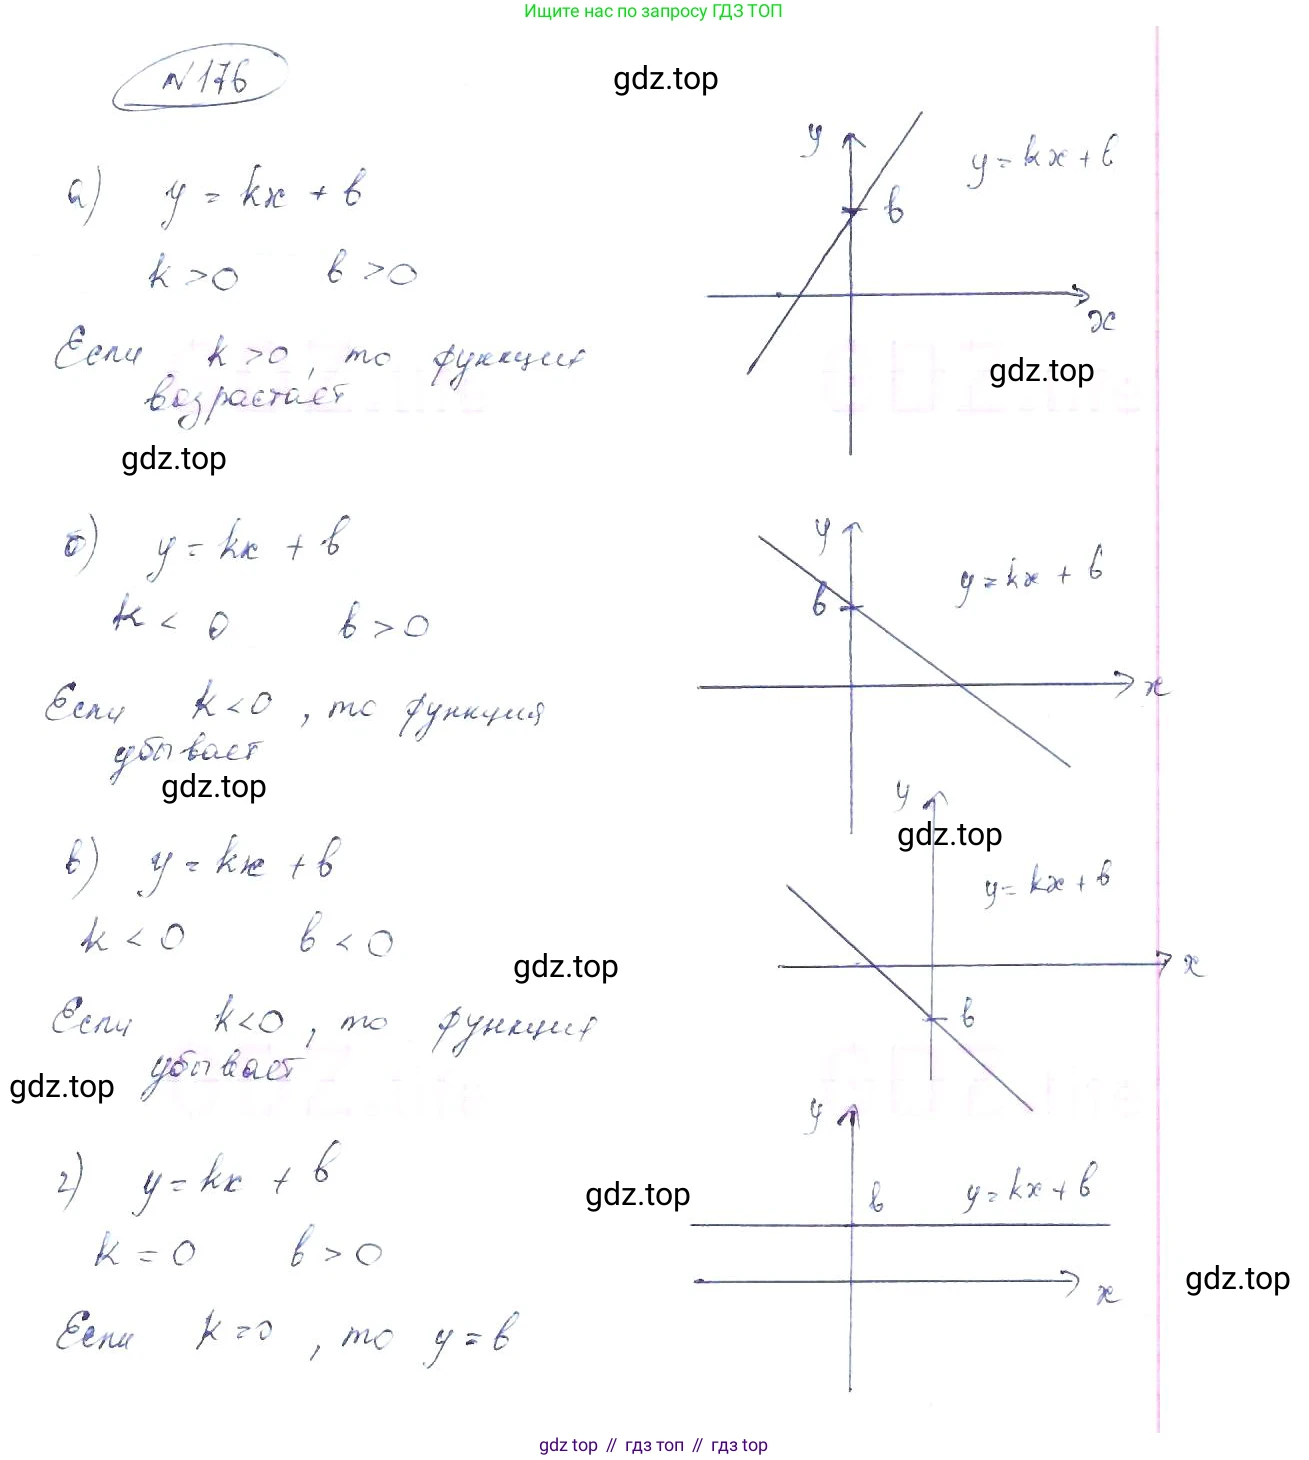 Ищите нас по запросу ГДЗ ТОП
N 176
gdz.top
а) y = kx + b
k > 0 b > 0
Если k > 0, то функция
возрастает
gdz.top
y
b
y = kx + b
x
gdz.top
б) y = kx + b
k < 0 b > 0
Если k < 0, то функция
убывает
gdz.top
y
b
y = kx + b
x
в) y = kx + b
k < 0 b < 0
gdz.top
Если k < 0, то функция
убывает
gdz.top
y
gdz.top
y = kx + b
x
b
г) y = kx + b
k = 0 b > 0
Если k = 0, то y = b
gdz.top
y
b
y = kx + b
x
gdz.top
gdz top // гдз топ // gdz top